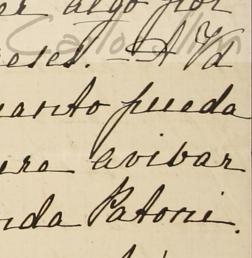 er algo por
eses. – A Vd
uanto pueda
ura avivar
ida Patorie.